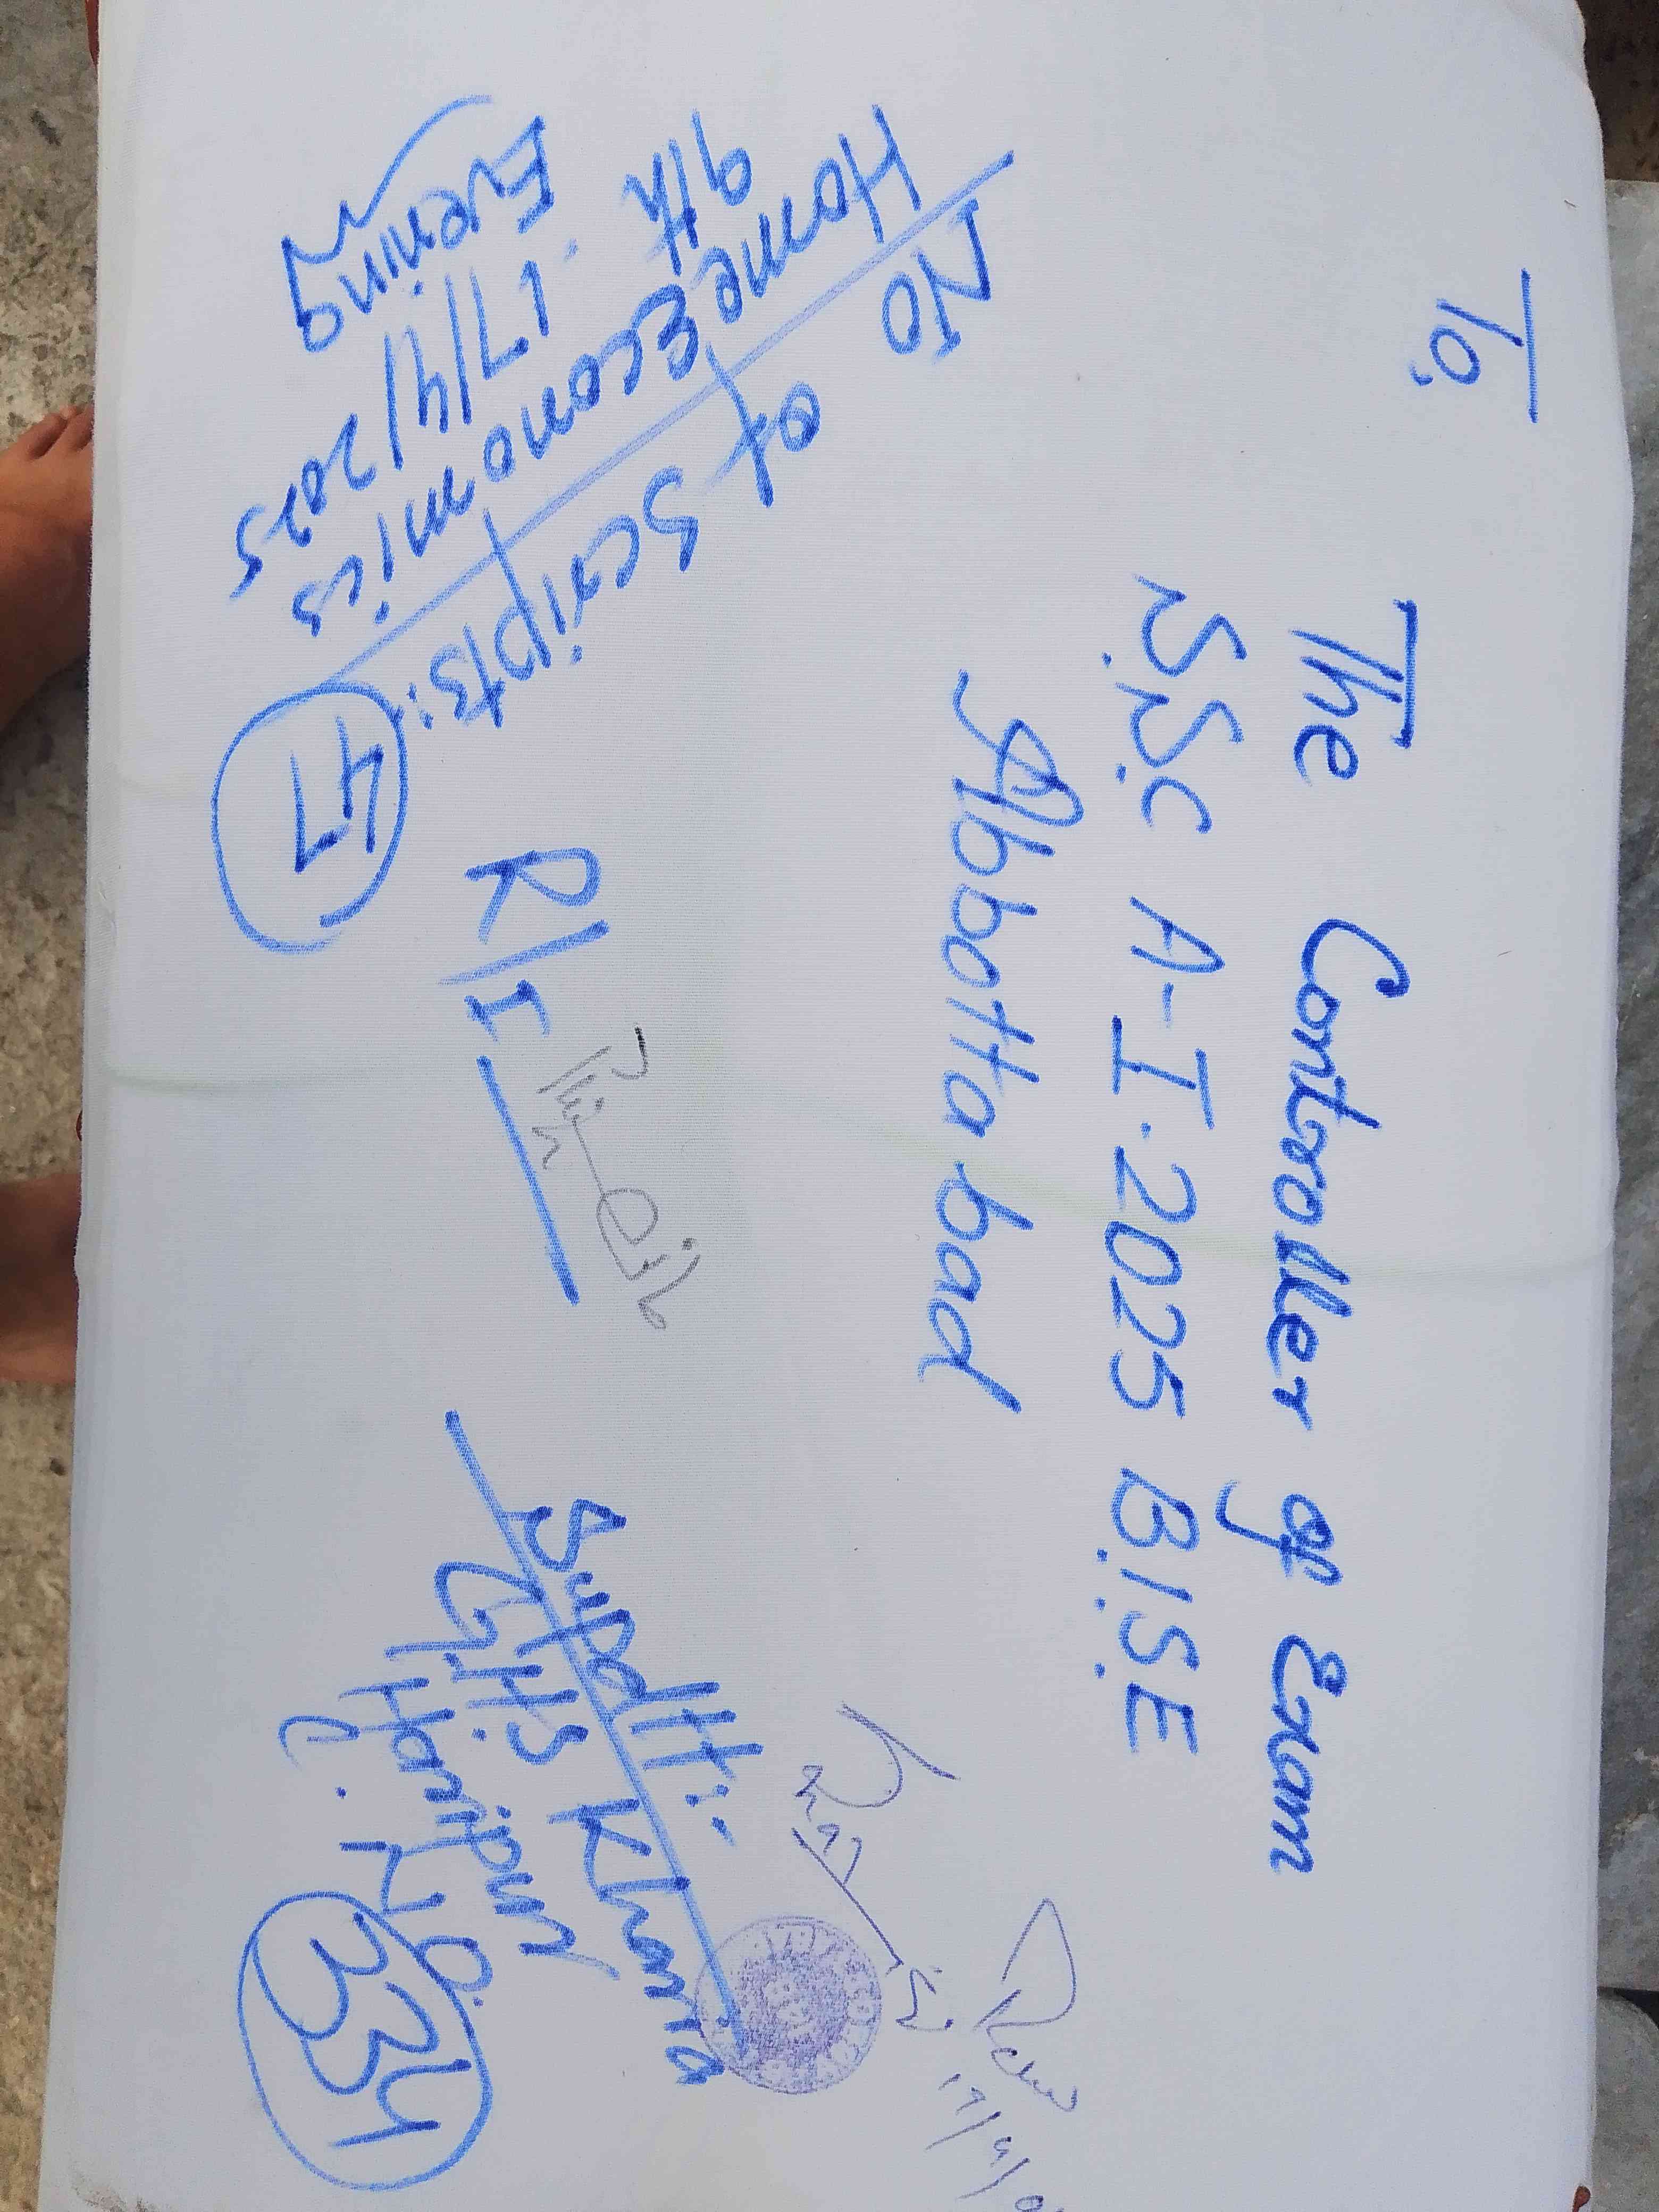 To,
The Controller of Exam
S.S.C A-I. 2025 B.I.S.E
Abbottabad
No of Scripts: 47
Home Economics
9th 17/4/2025
Evening
R/I
Supdtt:-
G.H.S Khanra
Haripur
C. No. 334